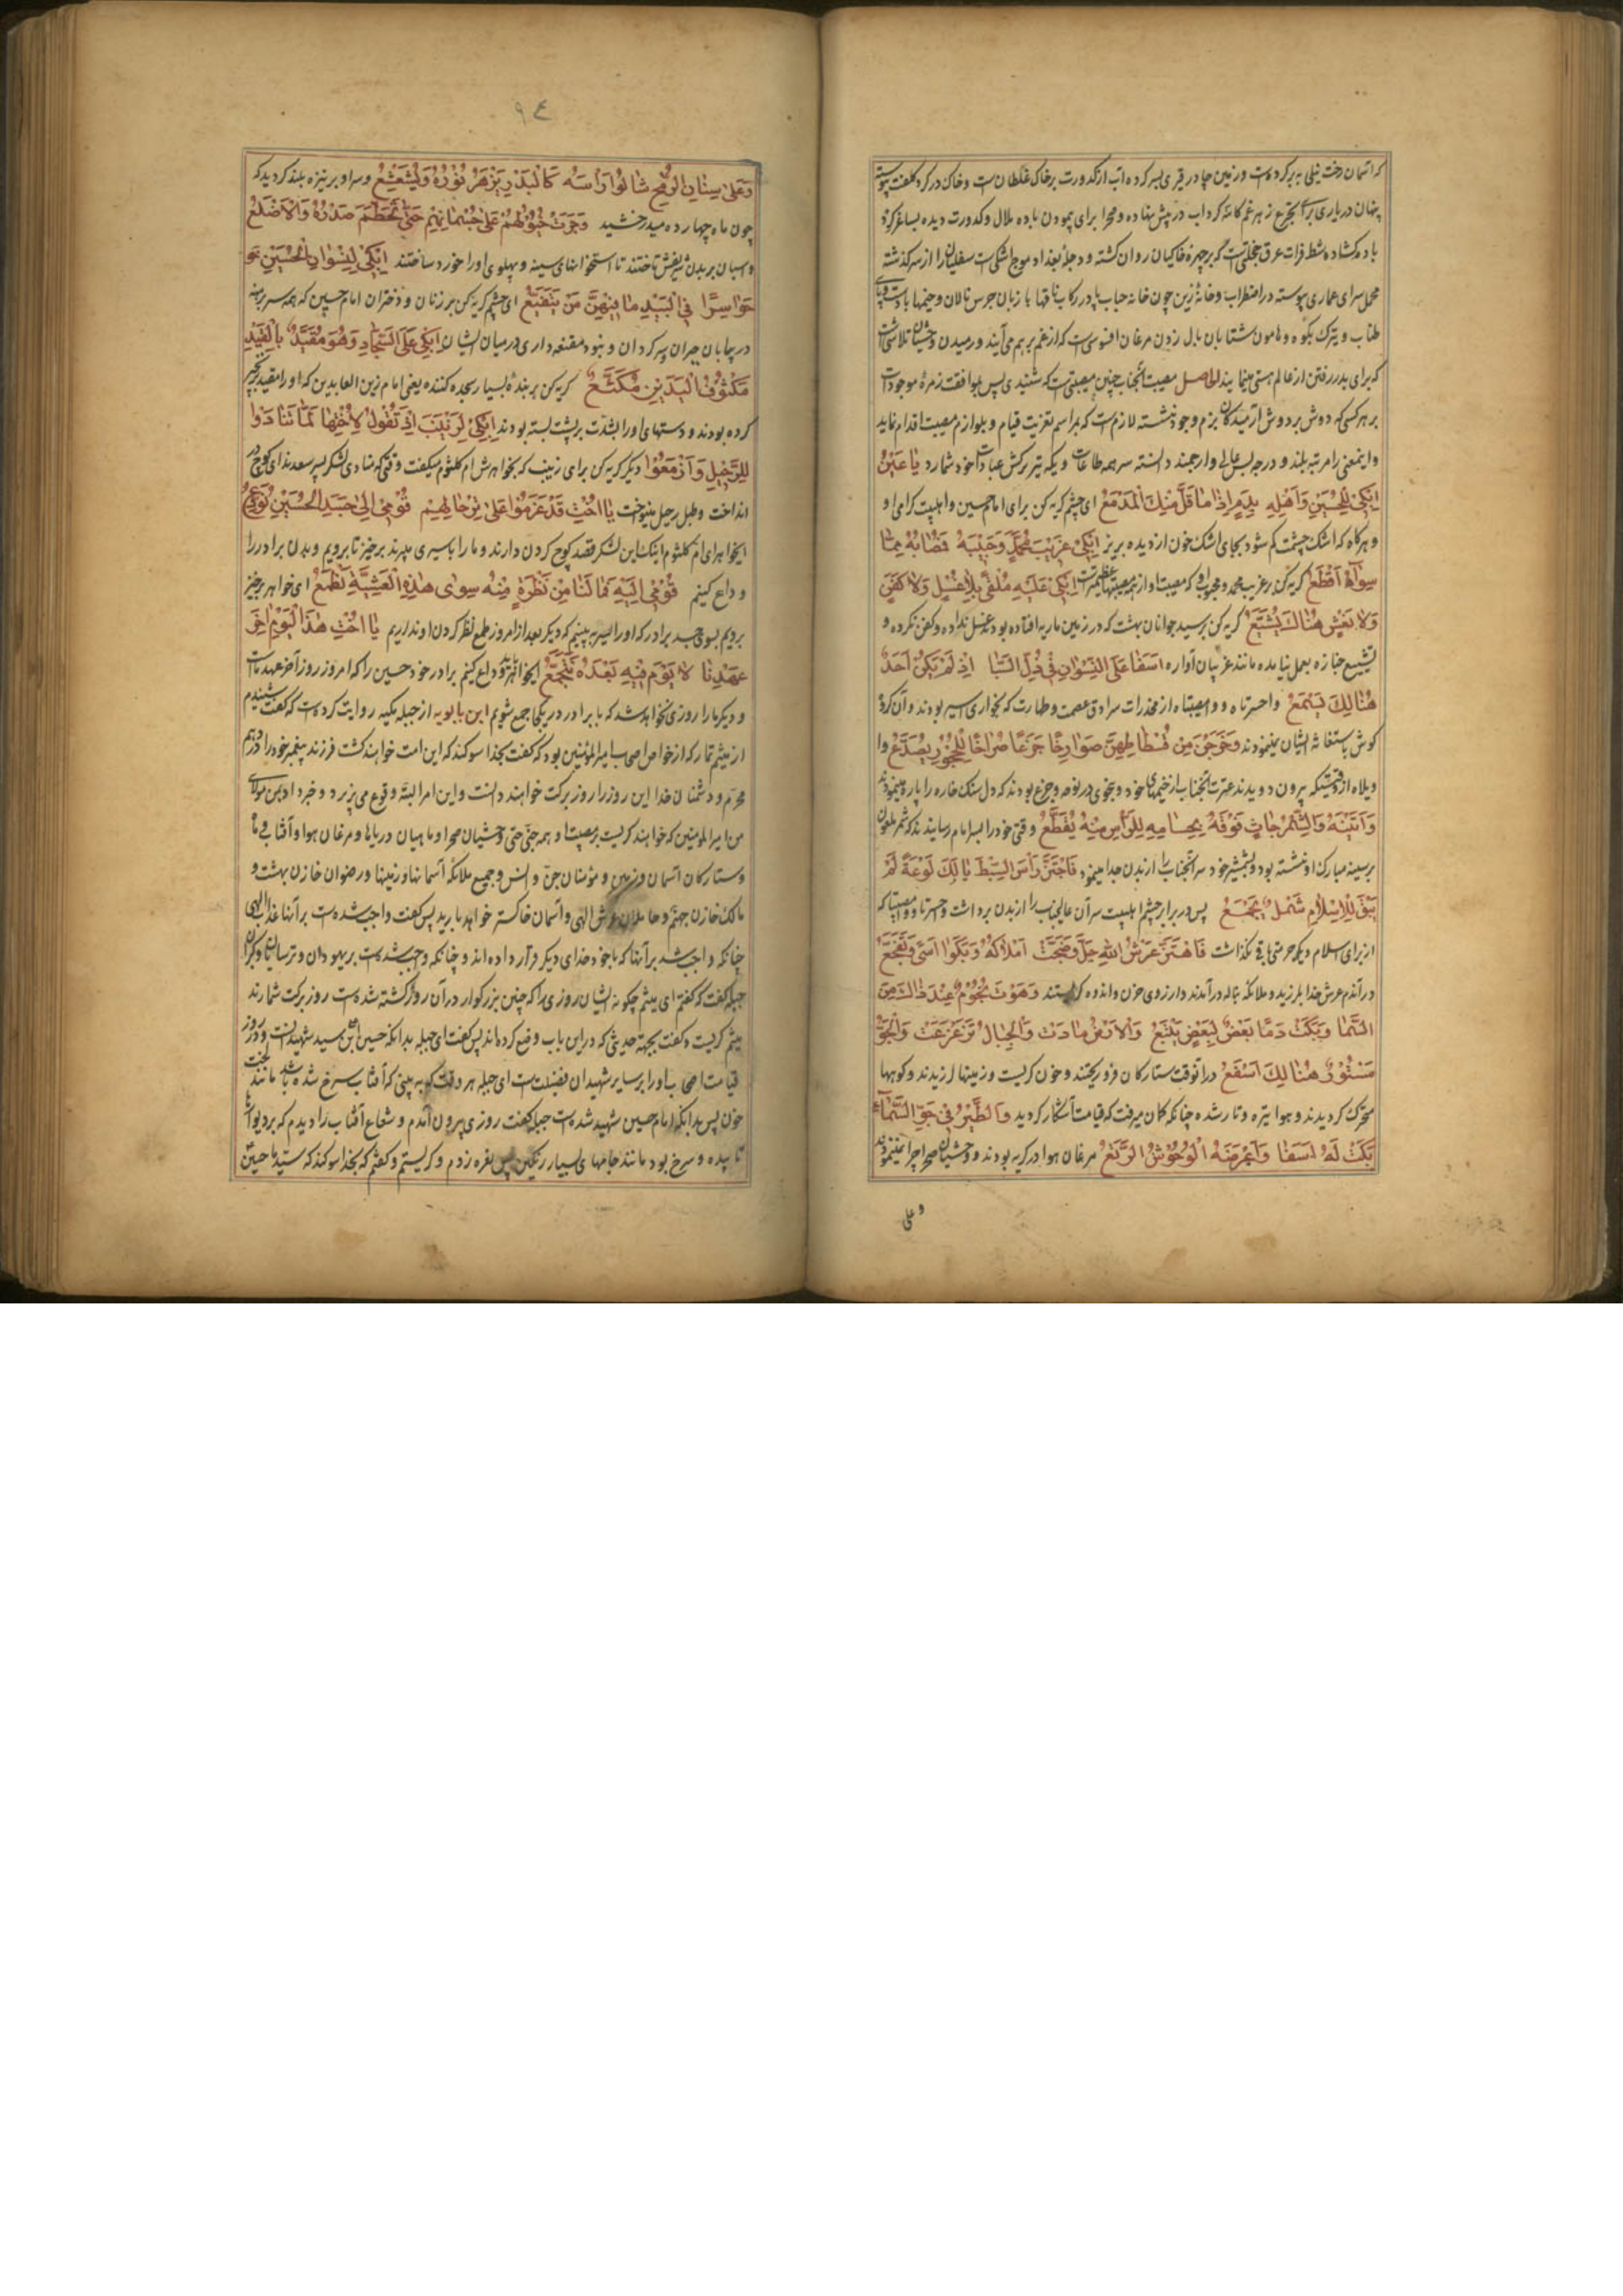 که آسمان رخت نیلی به بر کرده است و زمین چادر قیری بسر کرده آب از کدورت بر خاک غلطان است و خاک در کرد کلفت پیوسته
پنهان دریا ری برای تجرع زهر غم کاسه کرداب در پیش نهاده و صحرا برای پیمودن باده ملال و کدورت دیده بساغر کرد
باد کشاده شط فرات عرق خجلتی است که بر چهره خاکیان روان کشته و دجله بغداد موج اشکی است سفلیان را از سر کذشته
محمل سرای عماری پیوسته در اضطراب و خانه زین چون خانه حباب پا در رکاب ناقها با زبان جرس نالان و خیمها با دست و پای
طناب و بترک بکوه و هامون شتابان بال زدن مرغان افسوسی است که از غم بر هم می آیند و رمیدن وحشیان تلاشی است
که برای بدر رفتن از عالم هستی مینمایند الحاصل مصیبت آنجناب چنین مصیبتی است که شنیدی پس بموافقت زمره موجودات
بر هر کسی که دوش بردوش آرمیدکان بزم وجود نشسته لازم است که بمراسم تعزیت قیام و بلوازم مصیبت اقدام نماید
و اینمعنی را مرتبه بلند و درجه بس عالی و ارجمند دانسته سر همه طاعات و یکه تیر ترکش عبادات خود شمارد یا عَیْنُ
اِبْکِی لِلْحُسَیْنِ وَاَهْلِهِ بِدَمٍ اِذَا مَا قَلَّ مِنْكِ الْمَدْمَعُ ای چشم کریه کن برای امام حسین و اهلبیت کرامی او
و هر کاه که اشک چشمت کم شود بجای اشک خون از دیده بریز اِبْکِی غَرِیْبَ مُحَمَّدٍ وَحَبِیْبَهُ فَمُصَابُهُ مِمَّا
سِوَاهُ اَفْظَعُ کریه کن بر غریب محمد و محبوب او که مصیبت او از همه مصیبتها عظیمتر است اِبْکِی عَلَیْهِ مُلْقًی بِلَا غُسْلٍ وَلَا کَفَنٍ
وَلَا نَعْشٍ هُنَالِكَ یُشَیَّعُ کریه کن بر سید جوانان بهشت که در زمین ماریه افتاده بود غسل نداده و کفن نکرده و
تشییع جنازه بعمل نیامده مانند غریبان آواره اَسَفًا عَلَی النِّسْوَانِ فِی ذُلِّ السَّبَا اِذْ لَمْ یَکُنْ اَحَدٌ
هُنَالِكَ یَسْمَعُ واحسرتاه و وامصیبتاه از مخدرات سرادق عصمت و طهارت که بخواری اسیر بودند و آن کرده
کوش باستغاثه ایشان نمینمودند وَخَرَجْنَ مِنْ فُسْطَاطِهِنَّ صَوَارِخًا جَزَعًا صُرَاخًا لِلصُّخُوْرِ یُصَدِّعُ وا
ویلاه از وقتیکه بیرون دویدند عترت آنجناب از خیمهای خود و بنحوی در نوحه و جزع بودند که دل سنک خاره را پاره مینمودند
وَاَتَیْنَهُ وَالشِّمْرُ جَاثٍ فَوْقَهُ بِحُسَامِهِ لِلرَّاْسِ مِنْهُ یُقَطِّعُ وقتی خود را بسر امام رسانیدند که شمر ملعون
بر سینه مبارک او نشسته بود و بشمشیر خود سر آنجناب را از بدن جدا مینمود فَاجْتَزَّ رَاْسَ السِّبْطِ یَا لَكَ لَوْعَةً لَمْ
یَبْقَ لِلْاِسْلَامِ شَمْلٌ یُجْمَعُ پس در برابر چشم اهلبیت سر آن عالیجناب را از بدن برداشت و احسرتا و وامصیبتا که
از برای اسلام دیکر حرمتی باقی نکذاشت فَاهْتَزَّ عَرْشُ اللهِ جَلَّ وَضَجَّتْ اَمْلَاکُهُ وَبَکَوْا اَسًی وَتَفَجَّعُ
در آندم عرش خدا بلرزید و ملائکه بناله در آمدند و از روی حزن و اندوه کریستند وَهَوَتْ نُجُوْمٌ عِنْدَ ذَاكَ مِنَ
السَّمَا وَبَکَتْ دَمًا بَعْضٌ لِبَعْضٍ یَتْبَعُ وَالْاَرْضُ مَادَتْ وَالْجِبَالُ تَزَعْزَعَتْ وَالْجَوُّ
هُنَالِكَ اَسْفَعُ در آنوقت ستارکان فرو ریختند و خون کریست و زمینها لرزیدند و کوهها
متحرک کردیدند و هوا تیره و تار شده چنانکه کمان میرفت که قیامت آشکار کردید وَالطَّیْرُ فِی جَوِّ السَّمَاءِ
بَکَتْ لَهُ اَسَفًا وَ الْوُحُوْشُ الرُّتَّعُ مرغان هوا در کریه بودند و وحشیان صحرا چرا نمینمودند
وعلی
٩٤
وَعَلَی سِنَانِ الرُّمْحِ شَالُوْا رَاْسَهُ کَالْبَدْرِ یَزْهَرُ نُوْرُهُ وَیُشَعْشِعُ و سر او بر نیزه بلند کردید که
چون ماه چهارده میدرخشید وَجَرَتْ خُیُوْلُهُمْ عَلَی جُثْمَانِهِمْ حَتَّی تَحَطَّمَ صَدْرُهُ وَالْاَضْلُعُ
و اسبان بر بدن شریفش تاختند تا استخوانهای سینه و پهلوی او را خورد ساختند اِبْکِی لِنِسْوَانِ الْحُسَیْنِ
حَوَاسِرًا فِی الْبِیْدِ مَا فِیْهِنَّ مَنْ یَتَقَنَّعُ ای چشم کریه کن بر زنان و دختران امام حسین که همه سر برهنه
در بیابان حیران و سرکردان و نبود مقنعه داری در میان ایشان اِبْکِی عَلَی السَّجَّادِ وَهُوَ مُقَیَّدٌ بِالْقَیْدِ
مَکْتُوْفُ الْیَدَیْنِ مُکَنَّعٌ کریه کن بر بنده بسیار سجده کننده یعنی امام زین العابدین که او را مقید بزنجیر
کرده بودند و دستهای او را بشدت بر پشت بسته بودند اِبْکِی لِزَیْنَبَ اِذْ تَقُوْلُ لِاُخْتِهَا لَمَّا تَنَادَوْا
لِلرَّحِیْلِ وَاَزْمَعُوْا دیکر کریه کن برای زینب که بخواهرش ام کلثوم میکفت وقتی که منادی لشکر پسر سعد ندای کوچ در
انداخت و طبل رحیل مینواخت یَا اُخْتِ قَدْ عَزَمُوْا عَلَی تِرْحَالِهِمْ قُوْمِی اِلَی جَسَدِ الْحُسَیْنِ نُوَدِّعُ
ایخواهر ای ام کلثوم اینک این لشکر قصد کوچ کردن دارند و ما را باسیری میبرند برخیز تا برویم و بدن برادر را
وداع کنیم قُوْمِی اِلَیْهِ فَمَا لَنَا مِنْ نَظْرَةٍ مِنْهُ سِوَی هٰذِهِ الْعَشِیَّةِ نَطْمَعُ ای خواهر برخیز
برویم بسوی جسد برادر که او را سیر به بینیم که دیکر بعد از امروز طمع نظر کردن او نداریم یَا اُخْتِ هٰذَا الْیَوْمُ اٰخِرُ
عَهْدِنَا لَا یَوْمَ فِیْهِ بَعْدَهُ نَتَجَمَّعُ ایخواهر وداع کنیم برادر خود حسین را که امروز روز آخر عهد ماست
و دیکر ما را روزی نخواهد شد که با برادر در یکجا جمع شویم ابن بابویه از جبله مکیه روایت کرده است که کفت شنیدم
از میثم تمار که از خواص اصحاب امیرالمؤمنین بود که کفت بخدا سوکند که این امت خواهند کشت فرزند پیغمبر خود را در دهم
محرم و دشمنان خدا این روز را روز برکت خواهند دانست و این امر البته وقوع می پذیرد و خبر داد بمن مولای
من امیرالمؤمنین که خواهند کریست بر مصیبت او همه چیز حتی وحشیان صحرا و ماهیان دریاها و مرغان هوا و آفتاب و ماه
و ستارکان آسمان و زمین و مؤمنان جن و انس و جمیع ملائکه آسمانها و زمینها و رضوان خازن بهشت و
مالک خازن جهنم و حاملان عرش الهی و آسمان خاکستر خواهد بارید پس کفت واجب شده است بر آنها عذاب الهی
چنانکه واجب شد بر آنها که با خود خدای دیکر قرار داده اند و چنانکه واجب شده است بر یهودان و ترسایان و کبران
جبله کفت که کفتم ای میثم چکونه ایشان روزی را که چنین بزرکوار در آن روز کشته شده است روز برکت شمارند
میثم کریست و کفت بجهة حدیثی که در این باب وضع کرده اند پس کفت ای جبله بدانکه حسین ابن علی سید شهیدانست در روز
قیامت اصحاب او را بر سایر شهیدان فضیلت است ای جبله هر وقت که به بینی که آفتاب سرخ شده باشد مانند
خون پس بدانکه امام حسین شهید شده است جبله کفت روزی بیرون آمدم و شعاع آفتاب را دیدم که بر دیوارها
تابیده و سرخ بود مانند جامهای بسیار رنکین پس نعره زدم و کریستم و کفتم که بخدا سوکند که سید ما حسین